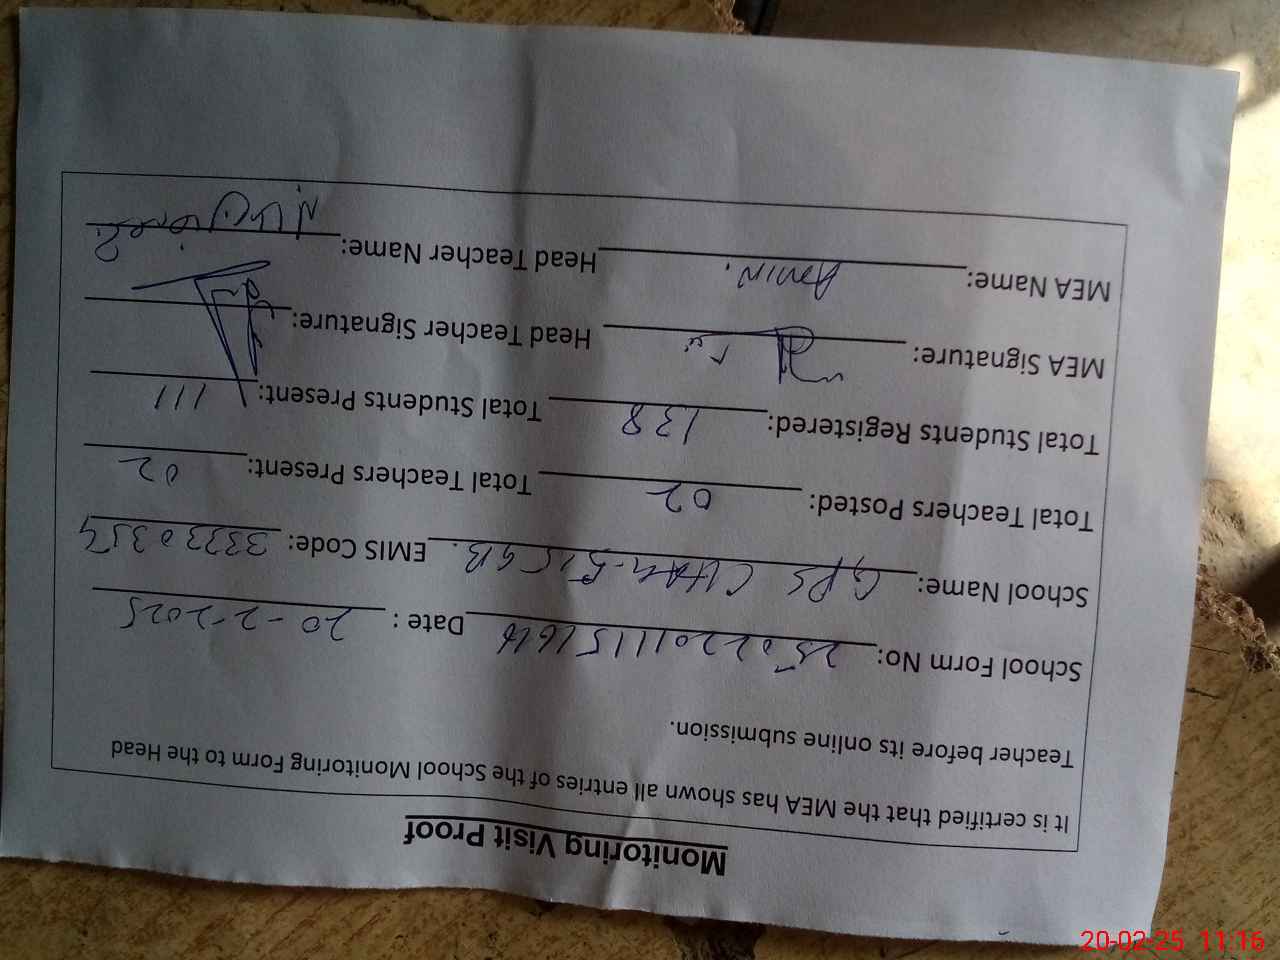 Monitoring Visit Proof
It is certified that the MEA has shown all entries of the School Monitoring Form to the Head
Teacher before its online submission.
School Form No: Date : 20-2-2025
School Name: GPS CHAK-515 GB. EMIS Code: 33330354
Total Teachers Posted: 02 Total Teachers Present: 02
Total Students Registered: 138 Total Students Present: 111
MEA Signature: Head Teacher Signature:
MEA Name: AMIN. Head Teacher Name:
20-02-25 11:16